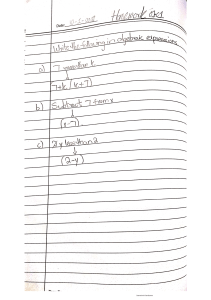 Date:
Homework
Write the following in algebraic expressions
a) 7 more than k
↓
7+k (k+7)
b) Subtract 7 from x
↓
(x-7)
c) y less than 2
↓
(2-y)